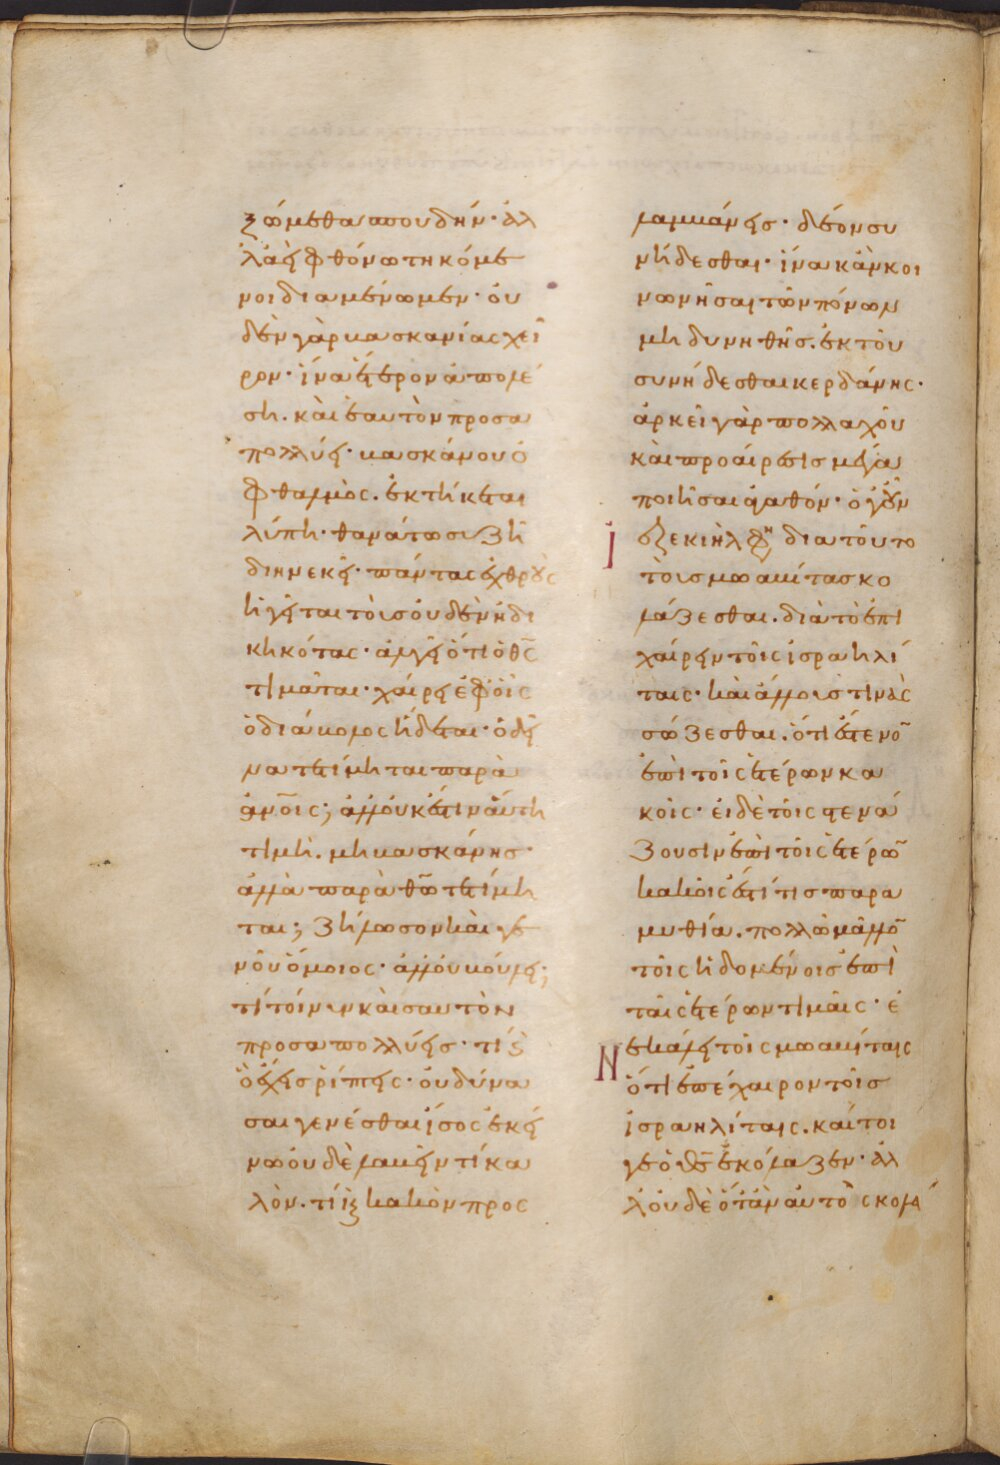 ξώμεθα σπουδὴν· ἀλ
λὰ ἐῶ φθόνω τηκόμε
νοι διαμένωμεν· οὐ
δὲν γὰρ βασκανίας χεῖ
ρον· ἵνα ἕτερον ἀπολέ
ση. καὶ ἑαυτὸν προσα
πολλύει· βασκάνου ὁ
φθαλμὸς. ἐκτήκεται
λύπη· θανάτω συζῆ
διηνεκεῖ· πάντας ἐχθροὺς
ἡγεῖται τοὺς οὐδὲν ἠδι
κηκότας· ἀλγεῖ ὅτι ὁ θς
τιμᾶται· χαίρει ἐφ' οἷς
ὁ διάβολος ἥδεται· ὁ δεῖ
να τετίμηται παρὰ
ἀνοις; ἀλλ' οὐκ ἔστιν αὕτη
τιμὴ. μὴ βασκάνης·
ἀλλὰ παρὰ θῶ τετίμη
ται; ζήλωσον καὶ γε
νοῦ ὅμοιος· ἀλλ' οὐ βούλει;
τί τοίνυν καὶ σαυτὸν
προσαπολλύεις· τί ὃ
ὃ ἔχεις ῥίπτεις· οὐ δύνα
σαι γενέσθαι ἴσος ἐκεί
νω οὐδὲ λαβεῖν τί κα
λὸν. τί καὶ κακὸν προς
λαμβάνεις· δέον συ
νήδεσθαι· ἵνα κἂν κοι
νωνῆσαι τῶν πόνων
μὴ δυνηθῆς. ἐκ τοῦ
συνήδεσθαι κερδάνης·
ἀρκεῖ γὰρ πολλαχοῦ
καὶ προαίρεσις μεγα
ποιῆσαι ἀγαθόν· ὁ γοῦν
ἰεζεκιὴλ φη διατοῦτο
τοὺς μωαβίτας κο
λάζεσθαι. διὰ τὸ ἐπι
χαίρειν τοῖς ἰσραηλί
ταις· καὶ ἄλλους τινὰς
σώζεσθαι. ὅτι ἔστενον
ἐπὶ τοῖς ἑτέρων κα
κοῖς· εἰ δὲ τοῖς στενά
ζουσιν ἐπὶ τοῖς ἑτέρων
κακοῖς ἐστί τις παρα
μυθία. πολλῶ μᾶλλον
τοῖς ἡδομένοις ἐπὶ
ταῖς ἑτέρων τιμαῖς· ἐ
νεκάλει τοῖς μωαβίταις
ὅτι ἐπέχαιρον τοῖς
ἰσραηλίταις. καίτοι
γε ὁ θς ἐκόλαζεν· ἀλ
λ' οὐδὲ ὅταν αὐτὸς κολά